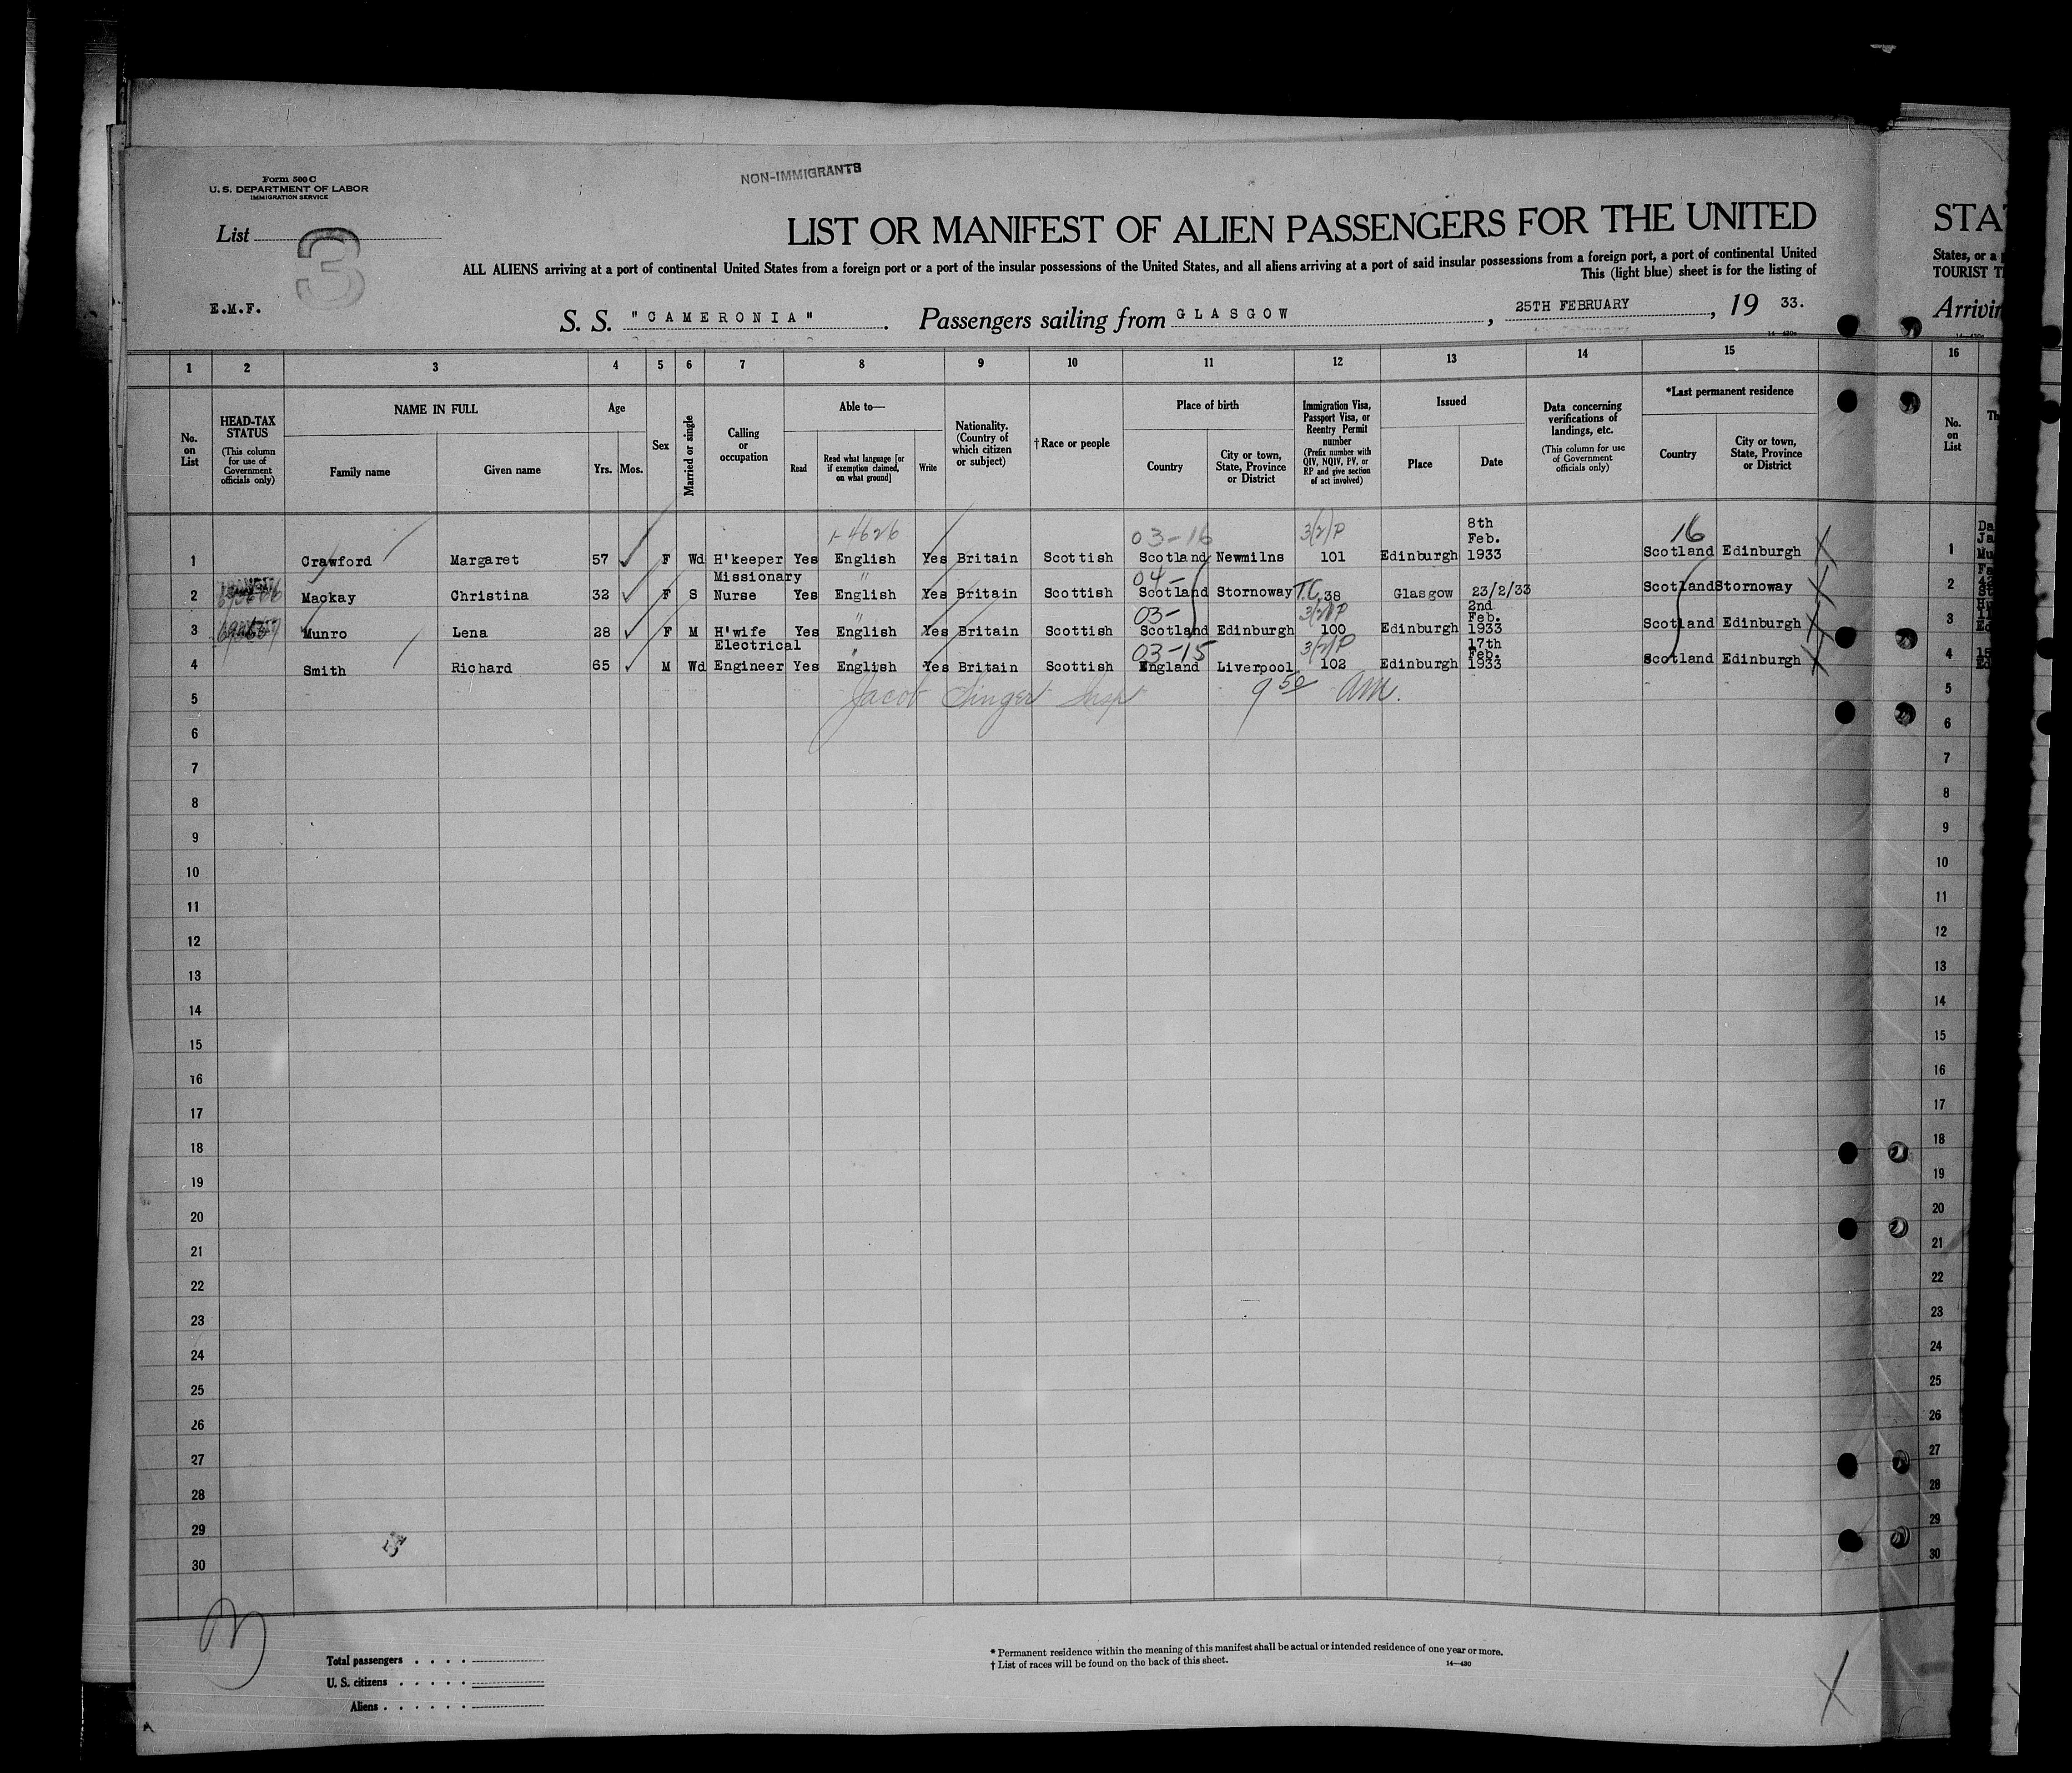 NON-IMMIGRANTS
Form 500 C
U. S. DEPARTMENT OF LABOR
IMMIGRATION SERVICE
List
3
LIST OR MANIFEST OF ALIEN PASSENGERS FOR THE UNITED
STA
ALL ALIENS arriving at a port of continental United States from a foreign port or a port of the insular possessions of the United States, and all aliens arriving at a port of said insular possessions from a foreign port, a port of continental United
States, or a
This (light blue) sheet is for the listing of
TOURIST
E.M.F.
S. S. "CAMERONIA". Passengers sailing from GLASGOW, 25TH FEBRUARY, 19 33.
Arrivin
1 2 3 4 5 6 7 8 9 10 11 12 13 14 15 16
No. on List
HEAD-TAX STATUS (This column for use of Government officials only)
NAME IN FULL
Family name Given name
Age
Yrs. Mos.
Sex
Married or single
Calling or occupation
Able to—
Read
Read what language [or if exemption claimed, on what ground]
Write
Nationality. (Country of which citizen or subject)
†Race or people
Place of birth
Country
City or town, State, Province or District
Immigration Visa, Passport Visa, or Reentry Permit number (Prefix number with QIV, NQIV, PV, or RP and give section of act involved)
Issued
Place Date
Data concerning verifications of landings, etc. (This column for use of Government officials only)
*Last permanent residence
Country
City or town, State, Province or District
No. on List
03-16 3/2/P 16
1 Crawford Margaret 57 F Wd H'keeper Yes English Yes Britain Scottish Scotland Newmilns 101 Edinburgh 8th Feb. 1933 Scotland Edinburgh 1
04-
2 Mackay Christina 32 F S Missionary Nurse Yes English Yes Britain Scottish Scotland Stornoway T.C. 38 Glasgow 23/2/33 Scotland Stornoway 2
03- 3/2/P
3 Munro Lena 28 F M H'wife Yes English Yes Britain Scottish Scotland Edinburgh 100 Edinburgh 2nd Feb. 1933 Scotland Edinburgh 3
03-15 3/2/P
4 Smith Richard 65 M Wd Electrical Engineer Yes English Yes Britain Scottish England Liverpool 102 Edinburgh 17th Feb. 1933 Scotland Edinburgh 4
Jacob Singer Insp 9 50 AM.
5 5
6 6
7 7
8 8
9 9
10 10
11 11
12 12
13 13
14 14
15 15
16 16
17 17
18 18
19 19
20 20
21 21
22 22
23 23
24 24
25 25
26 26
27 27
28 28
29 29
30 30
Total passengers
U. S. citizens
Aliens
* Permanent residence within the meaning of this manifest shall be actual or intended residence of one year or more.
† List of races will be found on the back of this sheet.
14—430